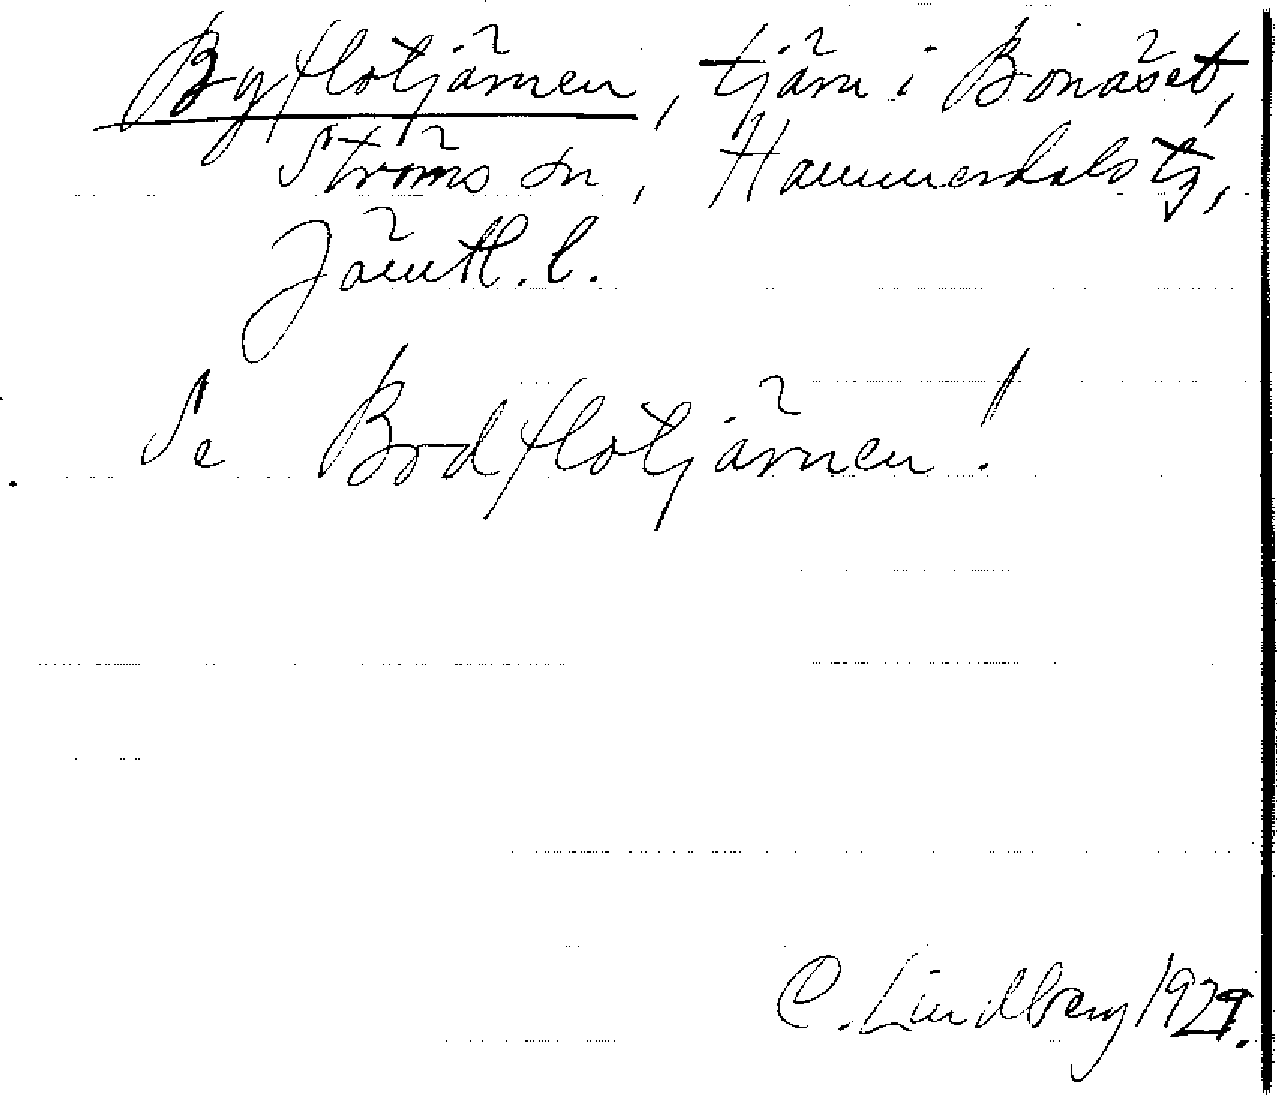 Byflotjärnen, tjärn i Bonäset,
Ströms sn, Hammerdals tg,
Jämtl. l.
Se Bodflotjärnen!
C. Lindberg 1929.